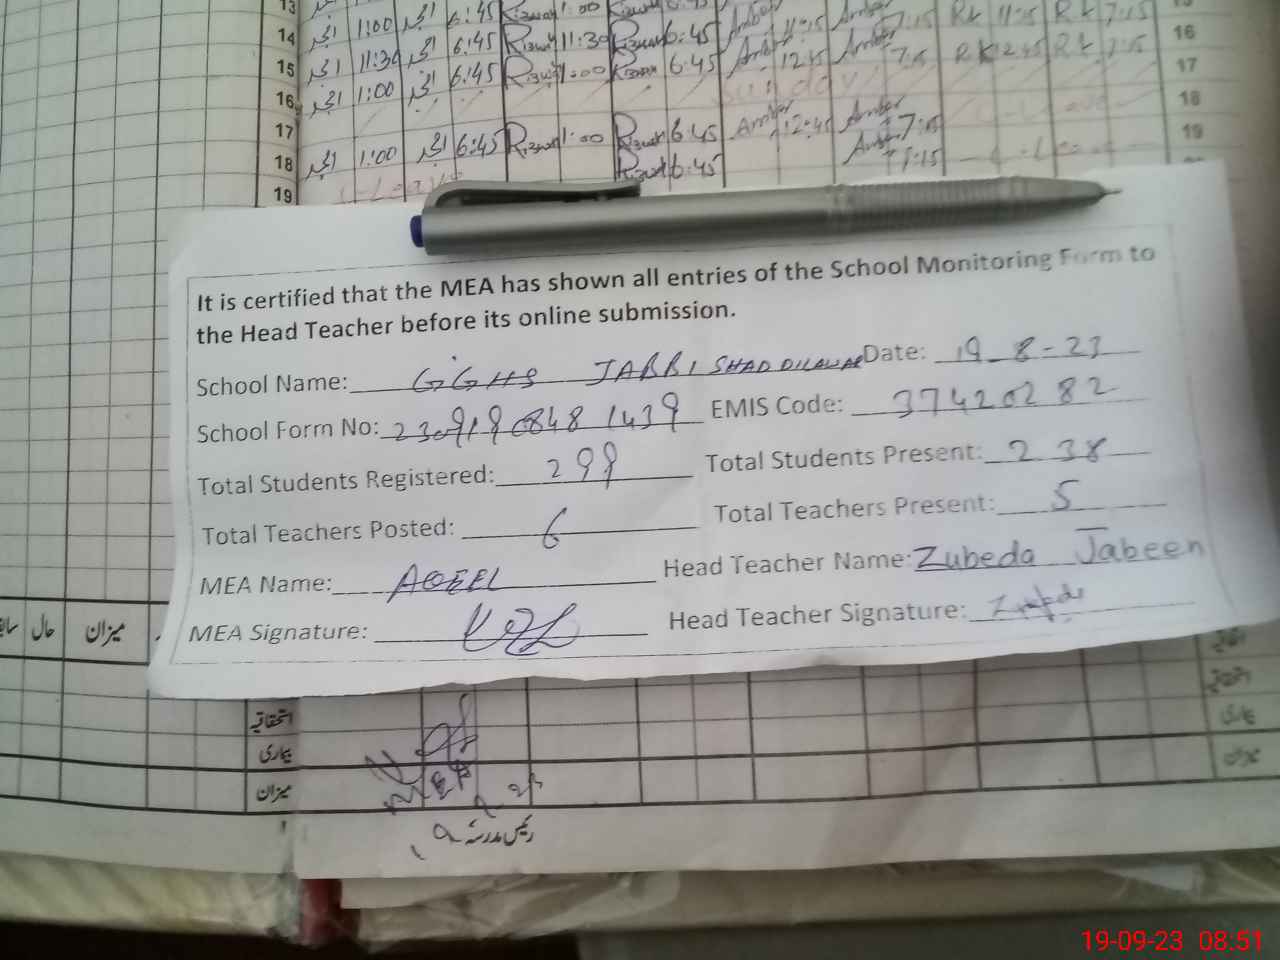 13
14 1:00 6:45 Rizwan 1:00 Rizwan 6:45 Amber 11:15 Amber 7:15 RK 11:15 RK 7:15
15 11:30 6:45 Rizwan 11:30 Rizwan 6:45 Amber 12:45 Amber 7:15 RK 12:45 RK 7:15 16
16 1:00 6:45 Rizwan 1:00 Rizwan 6:45 Sunday 17
17 18
18 1:00 6:45 Rizwan 1:00 Rizwan 6:45 Amber 12:45 Amber 7:15 19
19 Leave Rizwan 6:45 7:15 Leave
It is certified that the MEA has shown all entries of the School Monitoring Form to
the Head Teacher before its online submission.
School Name: GGHS JABBI SHAD DILAWAR Date: 19-8-23
School Form No: 230919 0848 1439 EMIS Code: 37420282
Total Students Registered: 299 Total Students Present: 238
Total Teachers Posted: 6 Total Teachers Present: 5
MEA Name: AQEEL Head Teacher Name: Zubeda Jabeen
MEA Signature: Head Teacher Signature:
میزان حال
اتفاقیہ
بیماری
میزان
رئیس مدرسہ
19-09-23 08:51